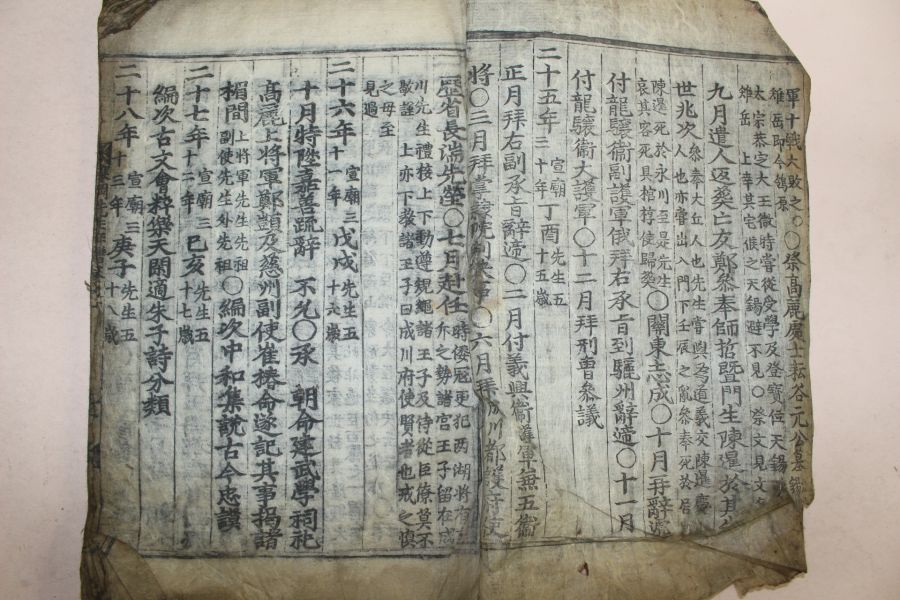 軍十戰大敗之○祭高麗處士耘谷元公墓
雉岳即今鴿原
太宗恭定大王微時嘗從受學及登寶位天錫
雉岳 上幸其宅俟之天錫避不見○祭文見文
九月遣人返葬亡友鄭參奉師哲曁門生陳暹於其
世兆次人參奉大丘人也先生嘗與爲道義交陳暹慶
人也亦嘗出入門下壬辰之亂參奉死於居
陳暹死於永川至是先生
哀其客死具棺槨使歸葬○關東志成○十月再辭
付龍驤衛副護軍俄拜右承旨到驪州辭遞○十一月
付龍驤衛大護軍○十二月拜刑曹參議
二十五年 宣廟三十年丁酉 先生五十五歲
正月拜右副承旨辭遞○二月付義興衛 軍無五衛
將○三月拜掌隸院判決事○六月拜成川都護府使
歷省長湍先塋○七月赴任 時倭寇更犯两湖將有
之勢諸宫王子留在成
川先生禮接上下動遵規繩諸王子及侍從臣僚莫不
敬謹 上亦下敎諸王子曰成川府使賢者也戒之愼
之毋至
見過
二十六年 宣廟三十一年戊戌 先生五十六歲
十月特陞嘉善疏辭 不允○承 朝命建武學祠祀
高麗上將軍鄭顗及慈州副使崔椿命遂記其事揭諸
楣間 上將軍先生先祖
副使先生外先祖○編次中和集說古今忠謨
二十七年 宣廟三十二年己亥 先生五十七歲
編次古文會粹樂天閑適朱子詩分類
二十八年 宣廟三十三年庚子 先生五十八歲